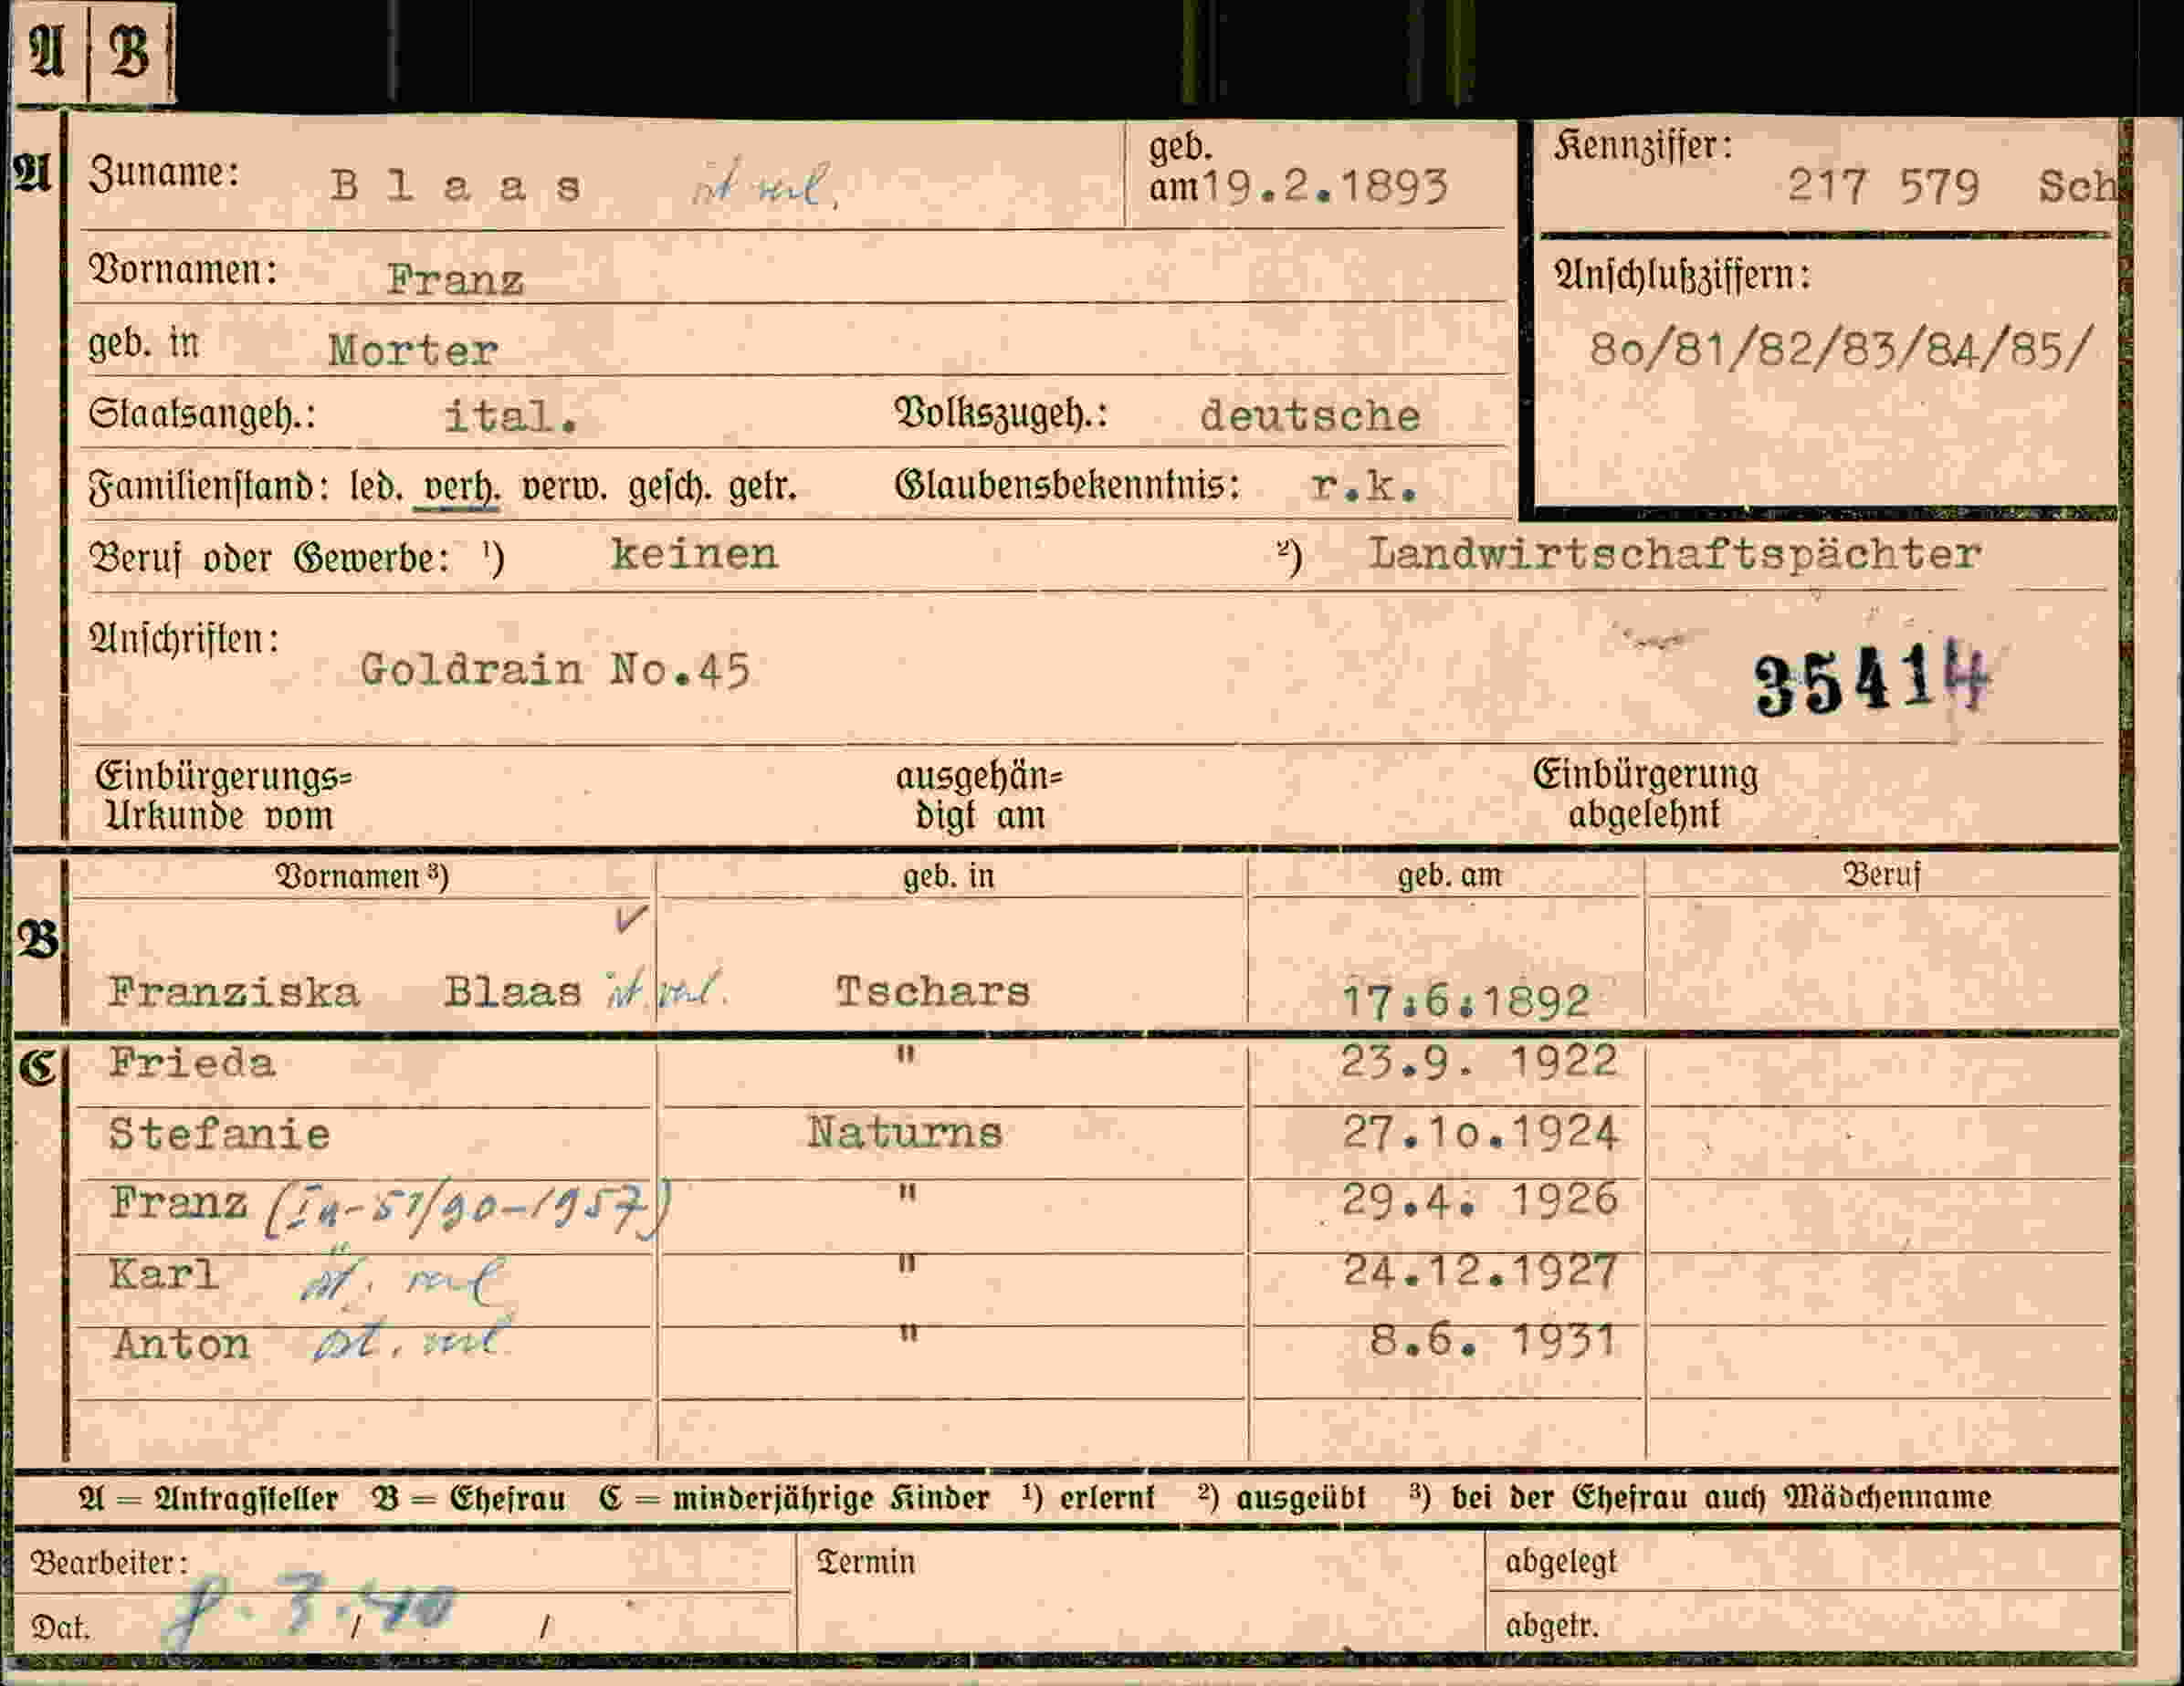 A B
A Zuname: Blaas geb. am 19.2.1893 Kennziffer: 217 579 Sch
Vornamen: Franz Anschlußziffern:
geb. in Morter 80/81/82/83/84/85/
Staatsangeh.: ital. Volkszugeh.: deutsche
Familienstand: led. verh. verw. gesch. getr. Glaubensbekenntnis: r.k.
Beruf oder Gewerbe: ¹) keinen ²) Landwirtschaftspächter
Anschriften: Goldrain No.45 35414
Einbürgerungs= ausgehän= Einbürgerung
Urkunde vom digt am abgelehnt
Vornamen ³) geb. in geb. am Beruf
B Franziska Blaas Tschars 17.6.1892
C Frieda " 23.9. 1922
Stefanie Naturns 27.1o.1924
Franz " 29.4. 1926
Karl " 24.12.1927
Anton " 8.6. 1931
A = Antragsteller B = Ehefrau C = minderjährige Kinder ¹) erlernt ²) ausgeübt ³) bei der Ehefrau auch Mädchenname
Bearbeiter: Termin abgelegt
Dat. 8.3.40 / / abgetr.